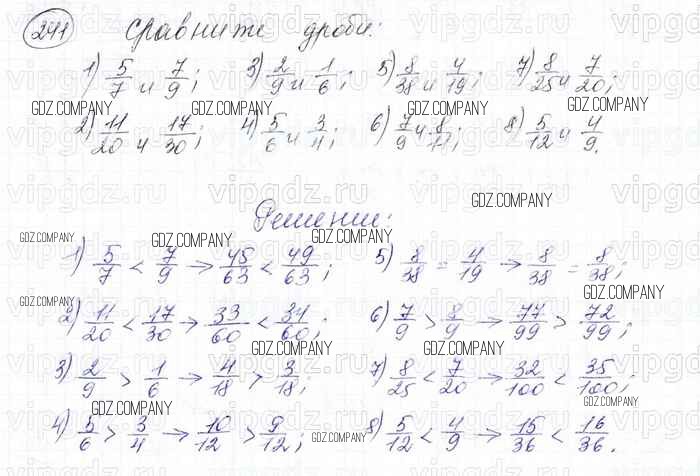 241 Сравните дроби:
1) 5/7 и 7/9; 3) 2/9 и 1/6; 5) 8/38 и 4/19; 7) 8/25 и 7/20;
2) 11/20 и 17/30; 4) 5/6 и 3/4; 6) 7/9 и 8/11; 8) 5/12 и 4/9.
Решение:
1) 5/7 < 7/9 → 45/63 < 49/63; 5) 8/38 = 4/19 → 8/38 = 8/38;
2) 11/20 < 17/30 → 33/60 < 34/60; 6) 7/9 > 8/9 → 77/99 > 72/99;
3) 2/9 > 1/6 → 4/18 > 3/18; 7) 8/25 < 7/20 → 32/100 < 35/100;
4) 5/6 > 3/4 → 10/12 > 9/12; 8) 5/12 < 4/9 → 15/36 < 16/36.
GDZ.COMPANY
vipgdz.ru